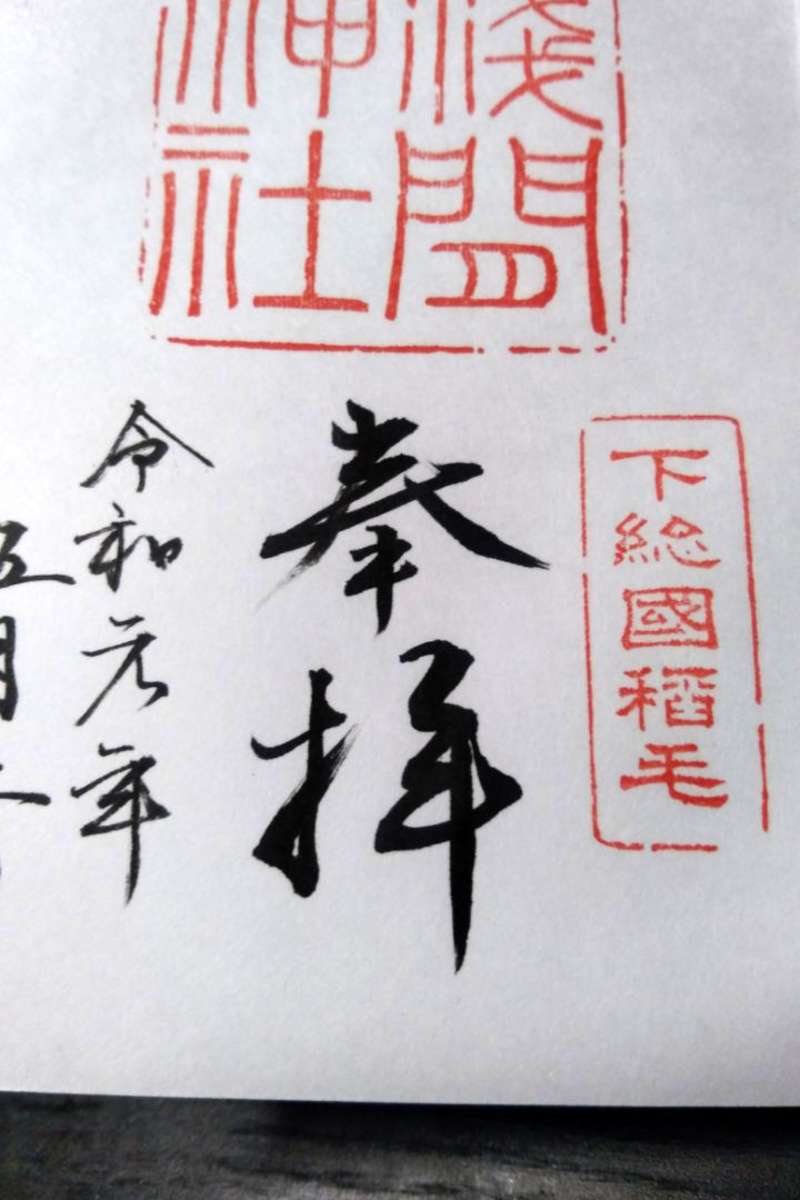 下総國稻毛
淺間
神社
奉拝
令和元年
五月